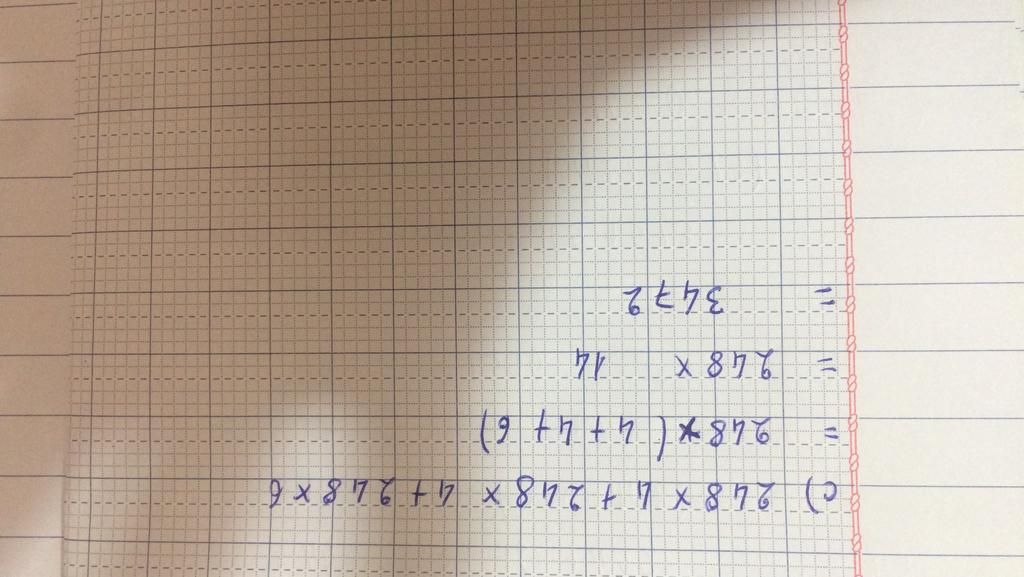 c) 248 × 4 + 248 × 4 + 248 × 6
= 248 × ( 4 + 4 + 6)
= 248 × 14
= 3472